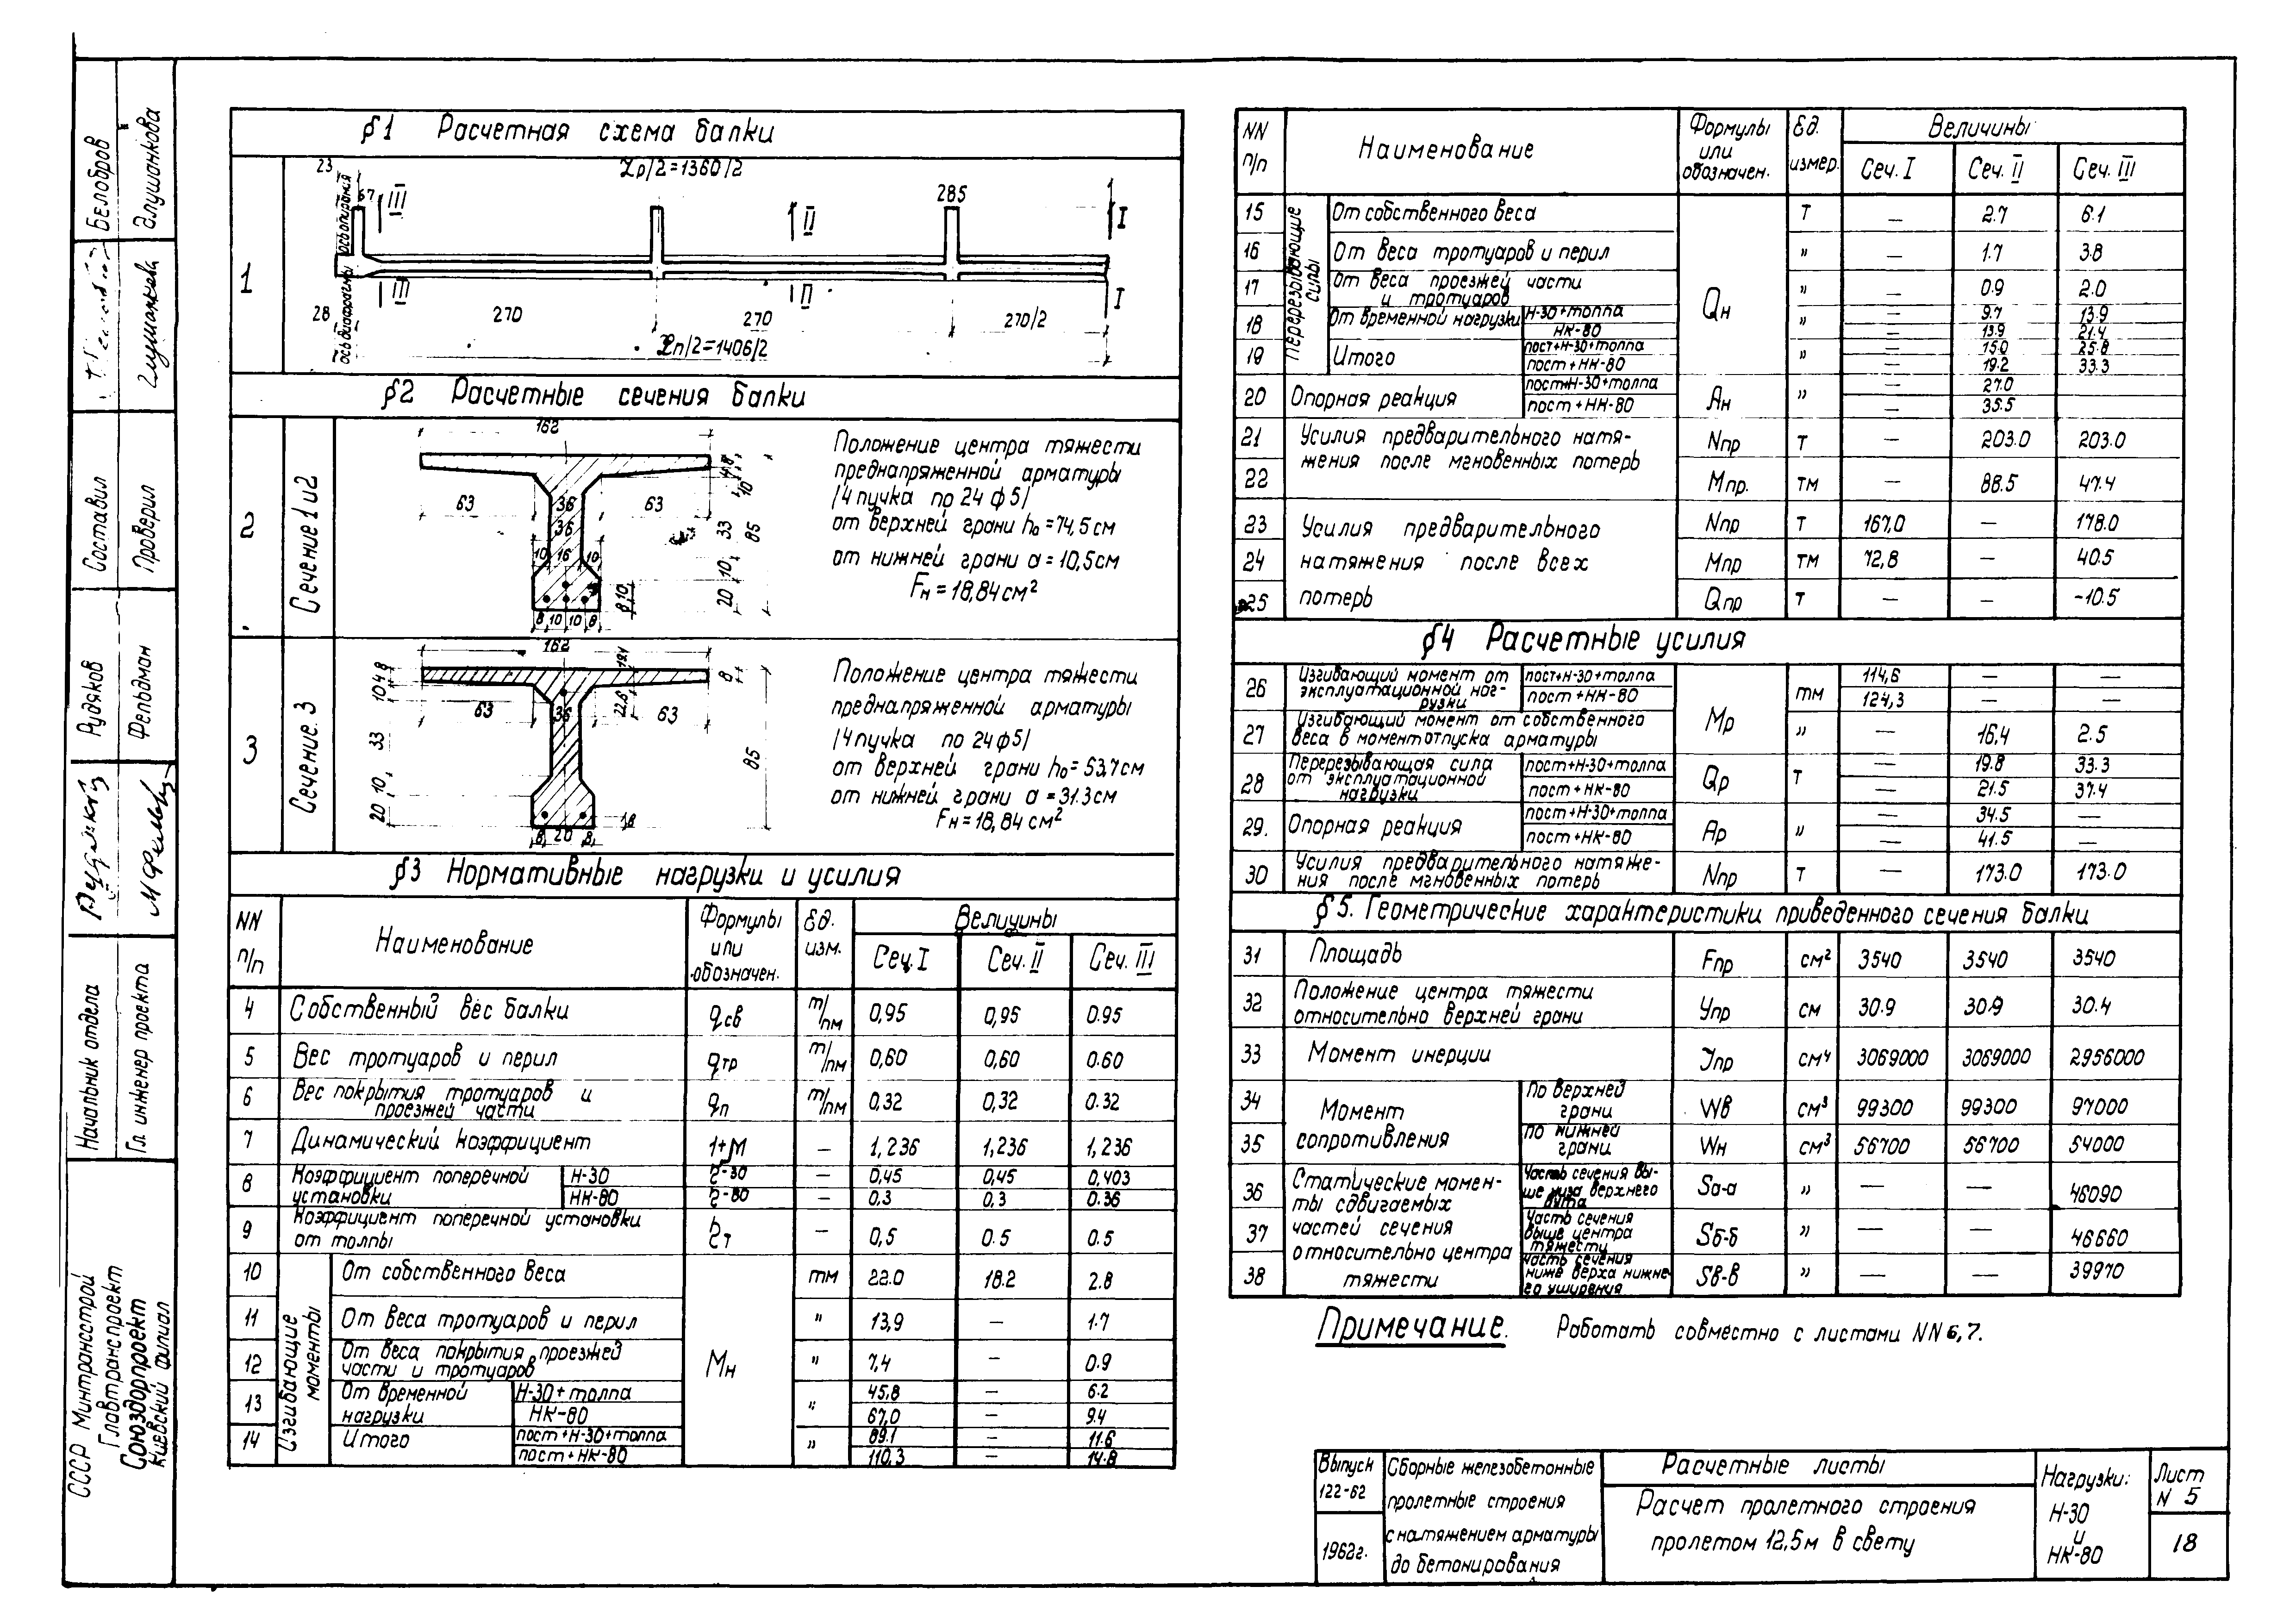 §1 Расчетная схема балки
1
23
67
Lр/2=1360/2
285
III
II
I
ось опирания
ось диафрагмы
III
II
I
28
270
270
270/2
Lп/2=1406/2
§2 Расчетные сечения балки
2
Сечение 1 и 2
162
63
36
63
36
10 16 10
8 10 10 8
33
85
10
20
Положение центра тяжести
преднапряженной арматуры
/4 пучка по 24 ф 5/
от верхней грани h₀=74,5 см
от нижней грани а=10,5см
Fн=18,84 см²
3
Сечение. 3
162
63
36
63
22.6
8
33
10
20
85
8 20 8
Положение центра тяжести
преднапряженной арматуры
/4 пучка по 24ф5/
от верхней грани h₀=53,7см
от нижней грани а=31.3см
Fн=18,84 см²
§3 Нормативные нагрузки и усилия
NN п/п Наименование Формулы или обозначен. Ед. изм. Величины
Сеч. I Сеч. II Сеч. III
4 Собственный вес балки qсв т/пм 0,95 0,95 0.95
5 Вес тротуаров и перил qтр т/пм 0,60 0,60 0.60
6 Вес покрытия тротуаров и проезжей части qп т/пм 0,32 0,32 0.32
7 Динамический коэффициент 1+М — 1,236 1,236 1,236
8 Коэффициент поперечной установки Н-30 — 0,45 0,45 0,403
НК-80 — 0.3 0,3 0.36
9 Коэффициент поперечной установки от толпы — 0,5 0.5 0.5
Изгибающие моменты
Мн
10 От собственного веса тм 22.0 18.2 2.8
11 От веса тротуаров и перил " 13,9 — 1.7
12 От веса покрытия проезжей части и тротуаров " 7,4 — 0.9
13 От временной нагрузки Н-30+толпа " 45,8 — 6.2
НК-80 67,0 — 9.4
14 Итого пост+Н-30+толпа " 89.1 — 11.6
пост+НК-80 110,3 — 14.8
NN п/п Наименование Формулы или обозначен. Ед. измер. Величины
Сеч. I Сеч. II Сеч. III
Перерезывающие силы
Qн
15 От собственного веса т — 2.7 6.1
16 От веса тротуаров и перил " — 1.7 3.8
17 От веса проезжей части и тротуаров " — 0.9 2.0
18 От временной нагрузки Н-30+толпа " — 9.7 13.9
НК-80 — 13.9 21.4
19 Итого пост+Н-30+толпа " — 15.0 25.8
пост+НК-80 — 19.2 33.3
20 Опорная реакция пост+Н-30+толпа Ан " — 27.0
пост+НК-80 — 35.5
21 Усилия предварительного натя- Nпр т — 203.0 203.0
жения после мгновенных потерь
22 Мпр. тм — 88.5 47.4
23 Усилия предварительного Nпр т 167.0 — 178.0
24 натяжения после всех Мпр тм 72,8 — 40.5
25 потерь Qпр т — — -10.5
§4 Расчетные усилия
26 Изгибающий момент от эксплуатационной нагрузки пост+Н-30+толпа Мр тм 114,6 — —
пост+НК-80 124,3 — —
27 Изгибающий момент от собственного веса в момент отпуска арматуры " — 16.4 2.5
28 Перерезывающая сила от эксплуатационной нагрузки пост+Н-30+толпа Qр т — 19.8 33.3
пост+НК-80 — 21.5 37.4
29. Опорная реакция пост+Н-30+толпа Ар " — 34.5 —
пост+НК-80 — 41.5 —
30 Усилия предварительного натяже-
ния после мгновенных потерь Nпр т — 173.0 173.0
§5. Геометрические характеристики приведенного сечения балки
31 Площадь Fпр см² 3540 3540 3540
32 Положение центра тяжести относительно верхней грани Упр см 30.9 30.9 30.4
33 Момент инерции Јпр см⁴ 3069000 3069000 2956000
34 Момент сопротивления По верхней грани Wв см³ 99300 99300 97000
35 по нижней грани Wн см³ 56700 56700 54000
36 Статические момен- Часть сечения вы-ше низа верхнего вута Sа-а " — — 46090
ты сдвигаемых
37 частей сечения Часть сечения выше центра тяжести Sб-б " — — 46660
относительно центра
38 тяжести Часть сечения ниже верха нижне-го уширения Sв-в " — — 39970
Примечание. Работать совместно с листами NN 6,7.
Выпуск 122-62
1962г.
Сборные железобетонные
пролетные строения
с натяжением арматуры
до бетонирования
Расчетные листы
Расчет пролетного строения
пролетом 12,5м в свету
Нагрузки:
Н-30
и
НК-80
Лист
N 5
18
Белобров
Глушанкова
Составил
Проверил
Рудяков
Фельдман
Начальник отдела
Гл. инженер проекта
СССР Минтрансстрой
Главтранспроект
Союздорпроект
Киевский филиал